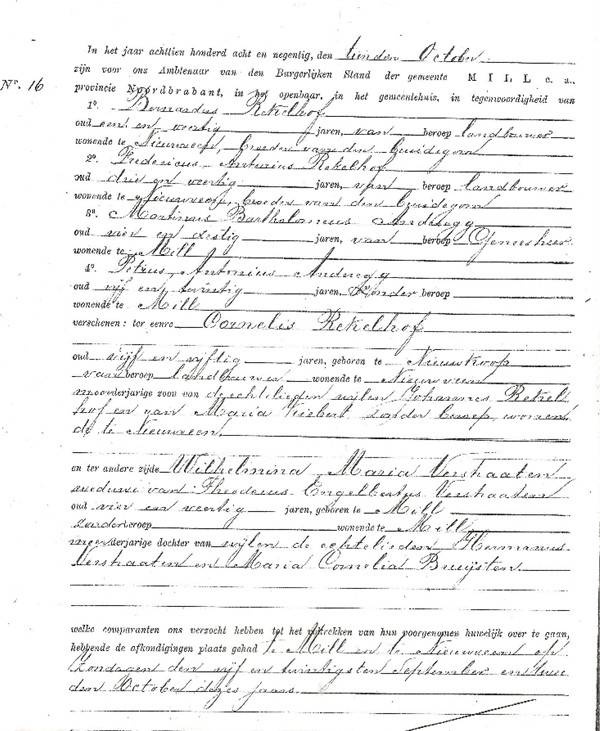 In het jaar achttien honderd acht en negentig, den tienden October
zijn voor ons Ambtenaar van den Burgerlijken Stand der gemeente MILL c. a.,
Nº. 16
provincie Noordbrabant, in het openbaar, in het gemeentehuis, in tegenwoordigheid van
1º. Bernardus Rekelhof
oud een en veertig jaren, van beroep landbouwer
wonende te Nieuwveen, broeder van den Bruidegom
2º. Fredericus Antonius Rekelhof
oud drie en veertig jaren, van beroep landbouwer
wonende te Nieuwveen, broeder van den Bruidegom
3º. Martinus Bartholomeus
oud vier en zestig jaren, van beroep Geneesheer
wonende te Mill
4º. Petrus Antonius
oud vijf en twintig jaren, zonder beroep
wonende te Mill
verschenen: ter eenre Cornelis Rekelhof
oud vijf en vijftig jaren, geboren te Nieuwkoop
van beroep landbouwer wonende te Nieuwveen
meerderjarige zoon van de echtelieden wijlen Johannes Rekel
hof en van Maria zonder beroep, wonen
de te Nieuwveen,
en ter andere zijde Wilhelmina Maria Verstraaten
weduwe van Theodorus Engelbertus Verstraaten
oud vier en veertig jaren, geboren te Mill
zonder beroep wonende te Mill
meerderjarige dochter van wijlen de echtelieden Hermanus
Verstraaten en Maria Cornelia
welke comparanten ons verzocht hebben tot het voltrekken van hun voorgenomen huwelijk over te gaan,
hebbende de afkondigingen plaats gehad te Mill en te Nieuwveen op
Zondagen den vijf en twintigsten September en twee
den October dezes jaars.